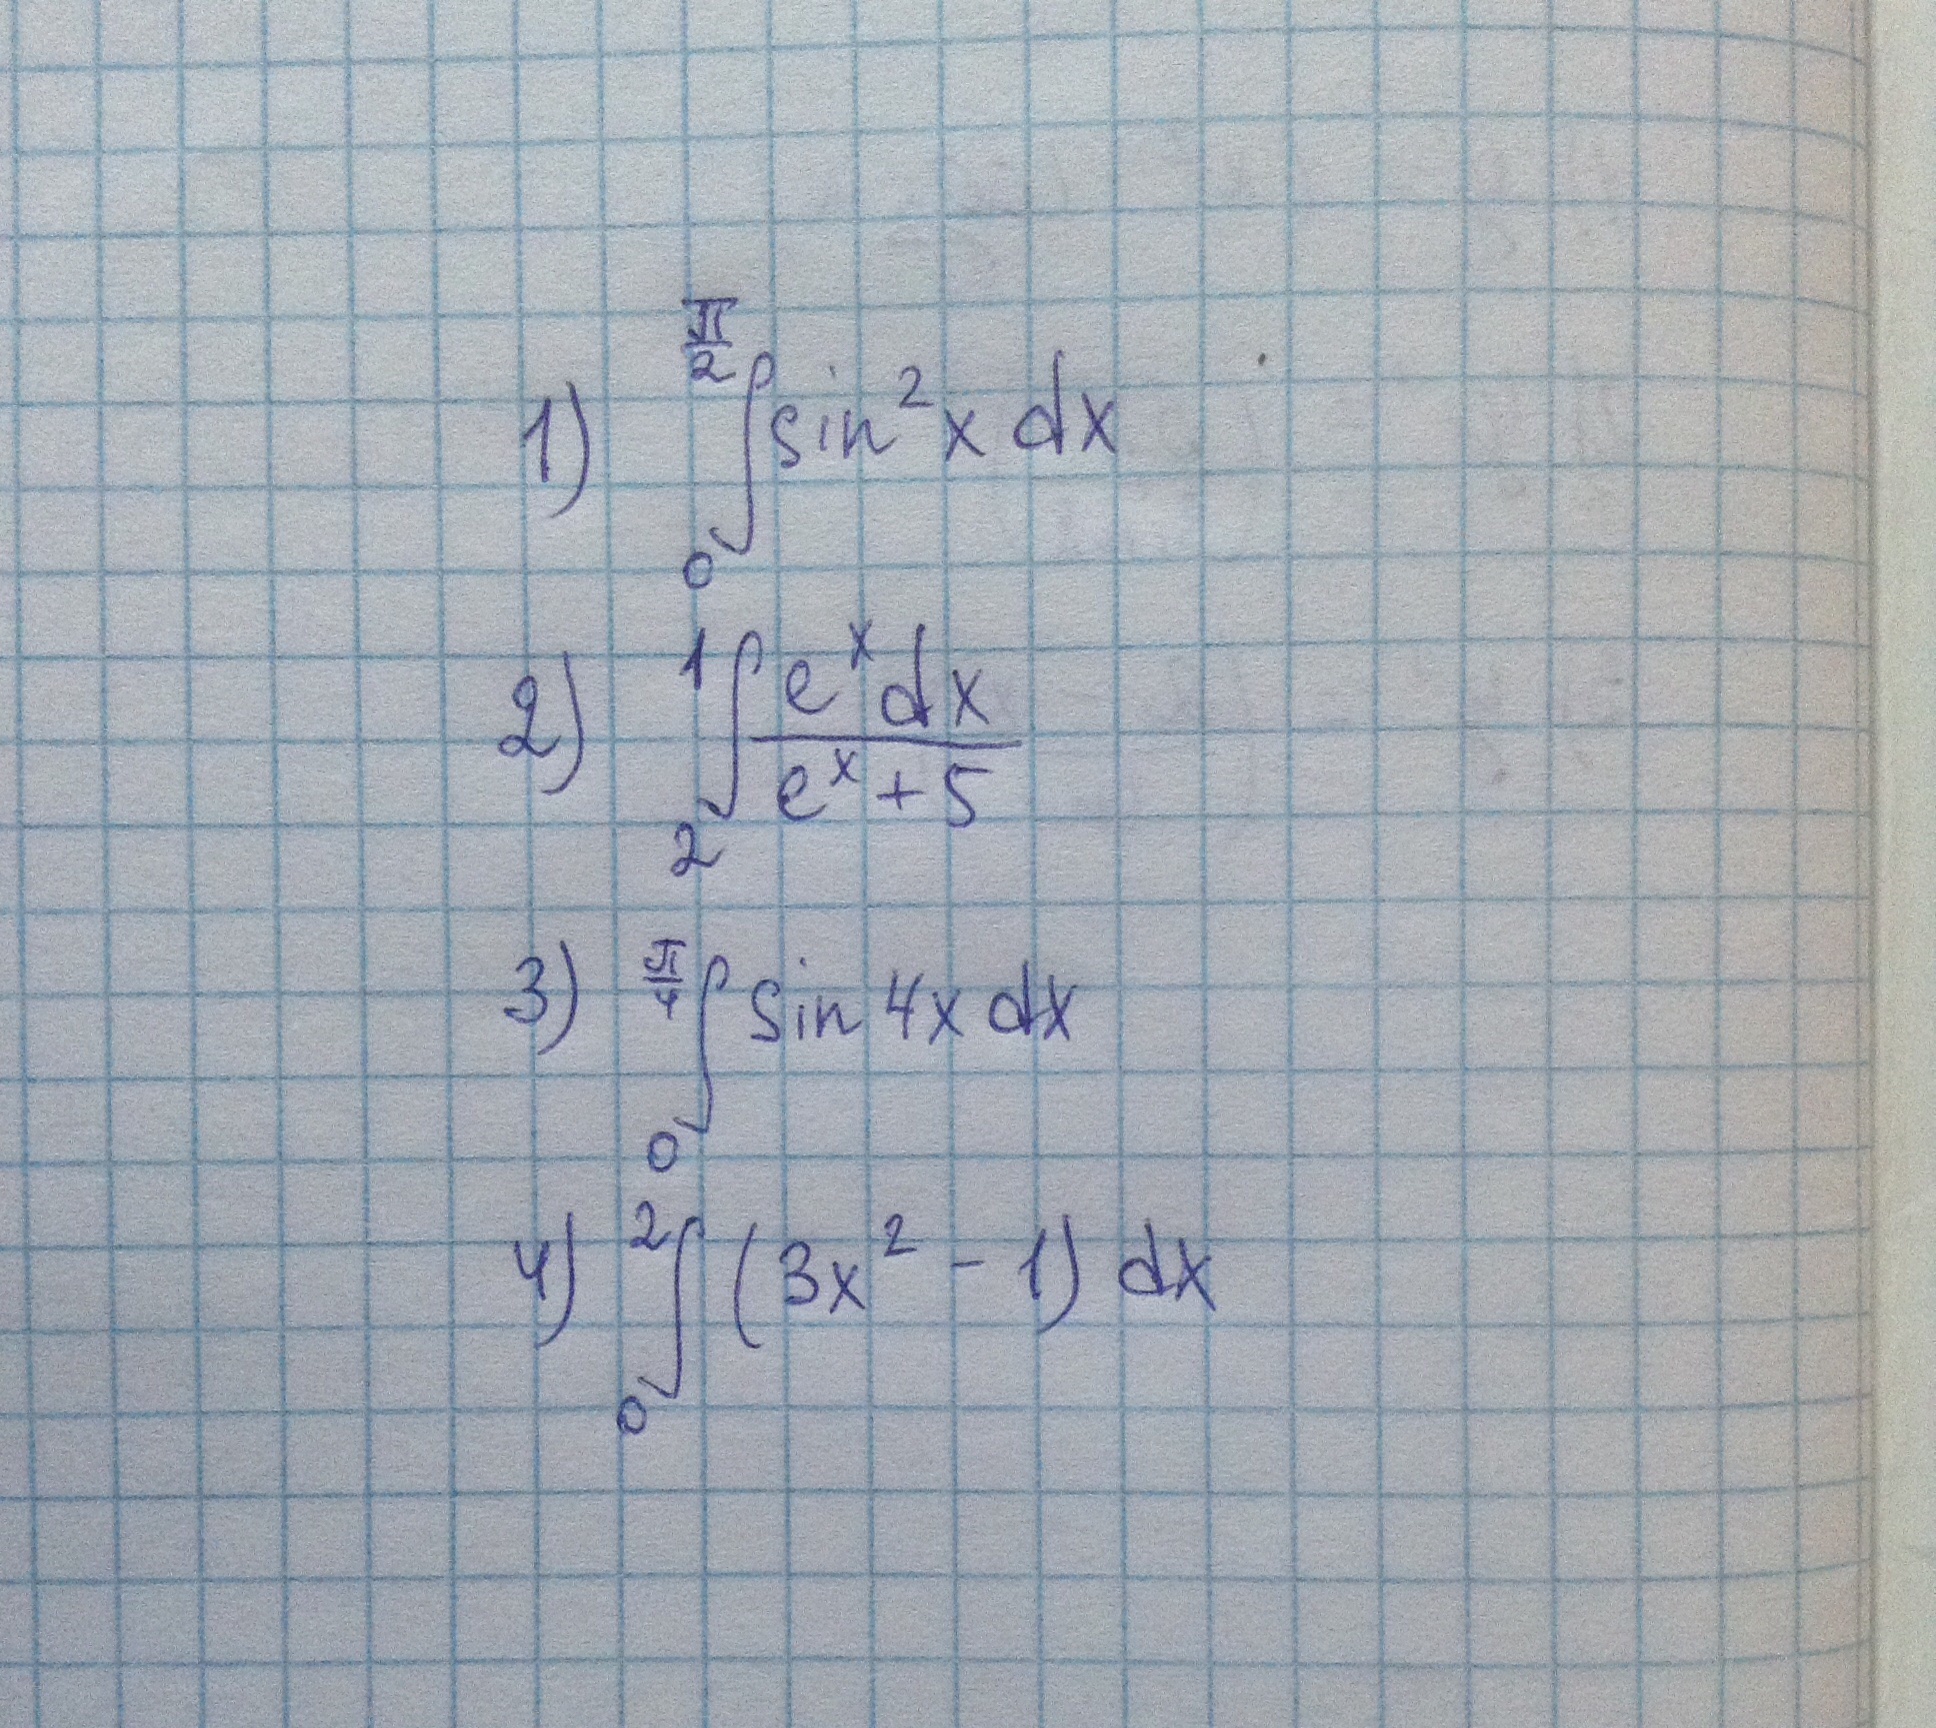 1) ∫₀^{π/2} sin² x dx
2) ∫₂¹ (eˣ dx)/(eˣ + 5)
3) ∫₀^{π/4} sin 4x dx
4) ∫₀² (3x² - 1) dx